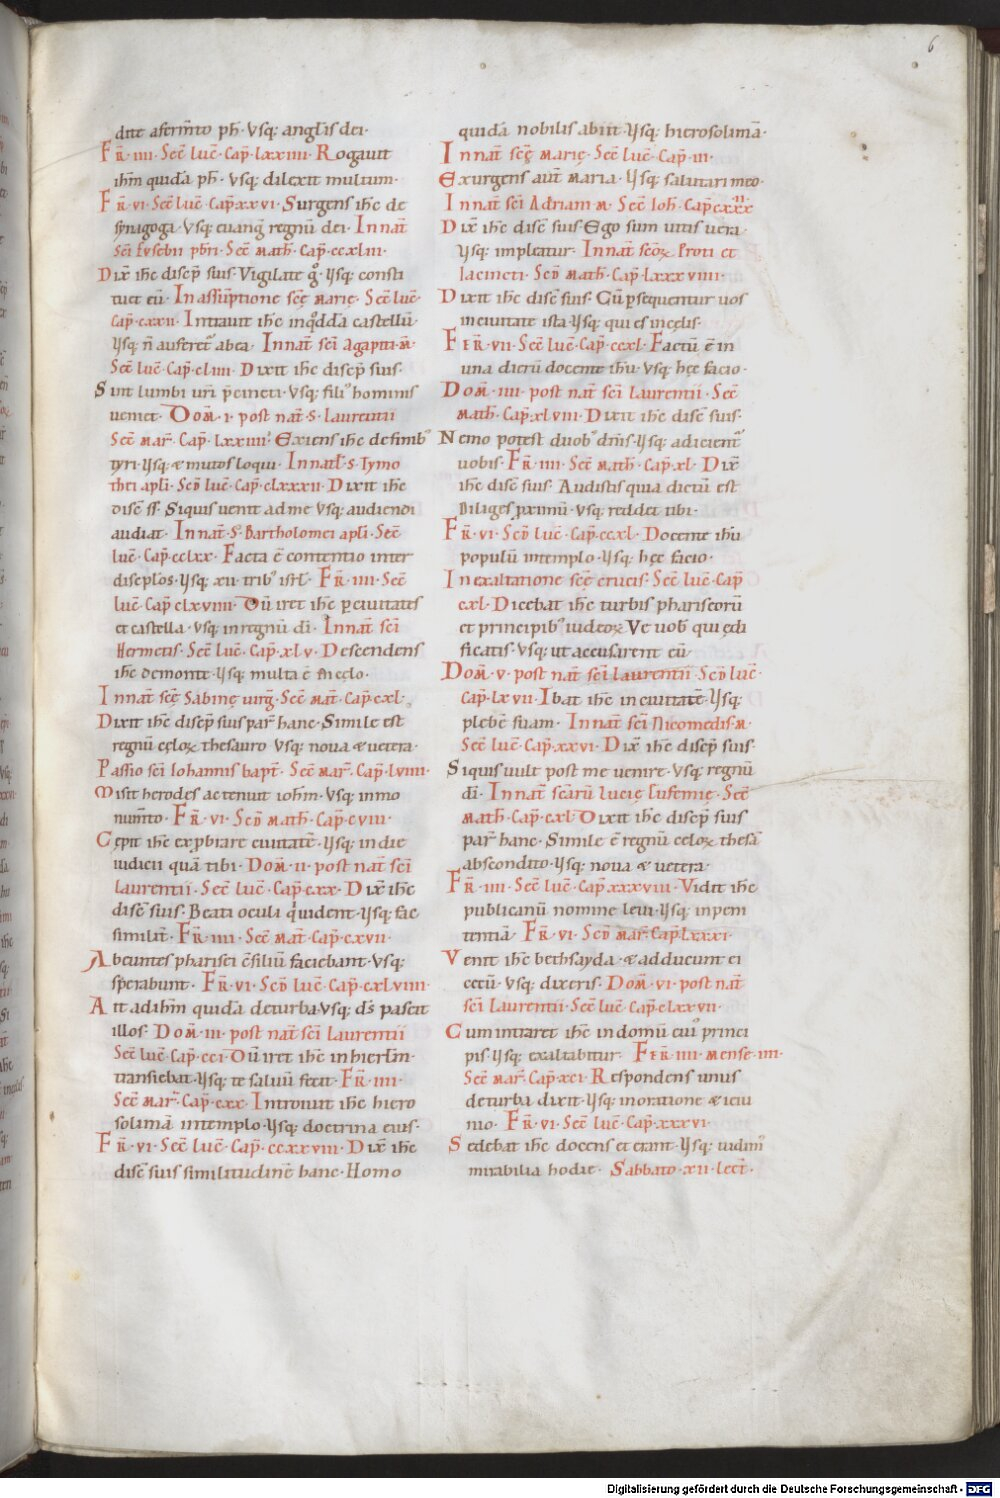 6
dite a ferm̄to ph̄· Vsq; angl̄is dei·
Fr̄· IIII· Sec̄ luc̄· Cap̄· Lxxiiii· Rogauit
ih̄m quidā ph̄· vsq; dilexit multum·
Fr̄· VI· Sec̄ luc̄· Cap̄ xxvi· Surgens ih̄c de
synagoga· Vsq; euanḡ regnū dei· In nat̄
Sc̄i Eusebii pbr̄i· Sec̄ Math̄· Cap̄· ccxliii·
Dix̄ ih̄c discip̄ suis· Vigilate g̊· Vsq; consti
tuet eū· In assūptione sc̄ę Marię· Sec̄ luc̄·
Cap̄· cxxii· Intrauit ih̄c in q̊ddā castellū·
Vsq; n̄ auferet᷑ abea· In nat̄ sc̄i Agapiti· M̄·
Sec̄ luc̄· Cap̄· cliiii· Dixit ih̄c discip̄ suis·
Sint lumbi ur̄i p̄cincti· Vsq; fili᷒ hominis
ueniet· Dom̄· I· post nat̄· S· Laurentii
Sec̄ Mar̄· Cap̄· Lxxiiii· Exiens ih̄c de finib᷒
tyri· Vsq; & mutos loqui· In natl̄· S· Tymo
thei apl̄i· Scd̄ luc̄· Cap̄· clxxxii· Dixit ih̄c
disc̄ ss̄· Siquis uenit ad me Vsq; audiendi
audiat· In nat̄· S· Bartholomei apl̄i· Sec̄
luc̄· Cap̄· cclxx· Facta ē contentio inter
discip̄los· Vsq; xii· trib᷒ isrl̄· Fr̄· IIII· Sec̄
luc̄· Cap̄ clxviiii· Dū iret ih̄c p̱ ciuitates
et castella· vsq; in regnū dī· In nat̄ sc̄i
Hermetis· Sec̄ luc̄· Cap̄· xlv· Descendens
ih̄c de monte· Vsq; multa ē in cęlo·
In nat̄ sc̄ę Sabinę uirg̃· Sec̄ mat̄· Cap̄· cxl·
Dixit ih̄c discip̄ suis par̄ hanc· Simile est
regnū cęloꝝ thesauro Vsq; noua & uetera·
Passio sc̄i Iohannis bapt̄· Sec̄ Mar̄· Cap̄· lviiii·
Misit herodes ac tenuit ioh̄m· Vsq; in mo
num̄to· Fr̄· VI· Scd̄ Math̄· Cap̄· cviii·
Cępit ih̄c exp̱brare ciuitatē· Vsq; in die
iudicii quā tibi· Dom̄· II· post nat̄ sc̄i
Laurentii· Sec̄ luc̄· Cap̄· cxx· Dix̄ ih̄c
disc̄ suis· Beati oculi q̇ uident· Vsq; fac
similit̄· Fr̄· IIII· Sec̄ Mat̄· Cap̄· cxvii·
Abeuntes pharisei c̄siliū faciebant· Vsq;
sp̄erabunt· Fr̄· VI· Scd̄ luc̄· Cap̄· cxlviiii·
Ait ad ih̄m quidā de turba· Vsq; ds̄ pascit
illos· Dom̄· III· post nat̄ sc̄i Laurentii
Sec̄ luc̄· Cap̄· cci· Dū iret ih̄c in hierl̄m·
transiebat· Vsq; te saluū fecit· Fr̄· IIII·
Sec̄ Mar̄· Cap̄· cxx· Introiuit ih̄c hiero
solimā in templo· Vsq; doctrina eius·
Fr̄· VI· Sec̄ luc̄· Cap̄· ccxxviii· Dix̄ ih̄c
disc̄ suis similitudinē hanc· Homo
quidā nobilis abiit· Vsq; hierosolimā·
In nat̄ sc̄ę Marię· Sec̄ luc̄· Cap̄· III·
Exurgens aut̄ Maria· Vsq; salutari meo·
In nat̄ sc̄i Adriani M· Sec̄ Ioh̄· Cap̄ cxxx
Dix̄ ih̄c disc̄ suis· Ego sum uitis uera
Vsq; impleatur· In nat̄ sc̄oꝝ Proti et
Iacincti· Scd̄ Math̄· Cap̄· Lxxxviiii·
Dixit ih̄c disc̄ suis· Cū p̱sequentur uos
in ciuitate ista· Vsq; qui ē in cęlis·
Fer̄· VII· Sec̄ luc̄· Cap̄· ccxl· Factū ē in
una dierū docente ih̄u· Vsq; hęc facio·
Dom̄· IIII· post nat̄ sc̄i Laurentii· Sec̄
Math̄· Cap̄· xlviii· Dixit ih̄c disc̄ suis·
Nemo potest duob᷒ dn̄is· Vsq; adicient᷑
uobis· Fr̄· IIII· Sec̄ Math̄· Cap̄· xl· Dix̄
ih̄c disc̄ suis· Audistis quia dictū est
Diliges p̱ximū· Vsq; reddet tibi·
Fr̄· VI· Scd̄ luc̄· Cap̄· ccxl· Docente ih̄u
populū in templo· Vsq; hęc facio·
In exaltatione sc̄ę crucis· Sec̄ luc̄· Cap̄
cxl· Dicebat ih̄c turbis phariseorū
et principib᷒ iudeoꝝ Ve uob̄ qui ędi
ficatis· Vsq; ut accusarent eū·
Dom̄· V· post nat̄ sc̄i Laurentii Scd̄ luc̄·
Cap̄· Lxvii· Ibat ih̄c in ciuitatē· Vsq;
plebē suam· In nat̄ sc̄i Nicomedis· M·
Sec̄ luc̄· Cap̄· xxvi· Dix̄ ih̄c discip̄ suis·
Siquis uult post me uenire· Vsq; regnū
dī· In nat̄ sc̄arū Lucię Eufemię· Sec̄
Math̄· Cap̄· cxl· Dixit ih̄c discip̄ suis
par̄ hanc· Simile ē regnū cęloꝝ thesā
abscondito· Vsq; noua & uetera·
Fr̄· IIII· Sec̄ luc̄· Cap̄ xxxviii· Vidit ih̄c
publicanū nomine leui· Vsq; in peni
tentiā· Fr̄· VI· Scd̄ Mar̄· Cap̄ Lxxxi·
Venit ih̄c bethsayda· & adducunt ei
cecū· vsq; dixeris· Dom̄· VI· post nat̄
sc̄i Laurentii· Sec̄ luc̄· Cap̄· clxxvii·
Cum intraret ih̄c in domū cui᷒ princi
pis· Vsq; exaltabitur· Fer̄· IIII· Mense· IIII·
Sec̄ Mar̄· Cap̄· xci· Respondens unus
de turba dixit· Vsq; in oratione & ieiu
nio· Fr̄· VI· Sec̄ luc̄· Cap̄· xxxvi·
Sedebat ih̄c docens et erant· Vsq; uidim᷒
mirabilia hodie· Sabbato· XII· lect̄·
Digitalisierung gefördert durch die Deutsche Forschungsgemeinschaft - DFG